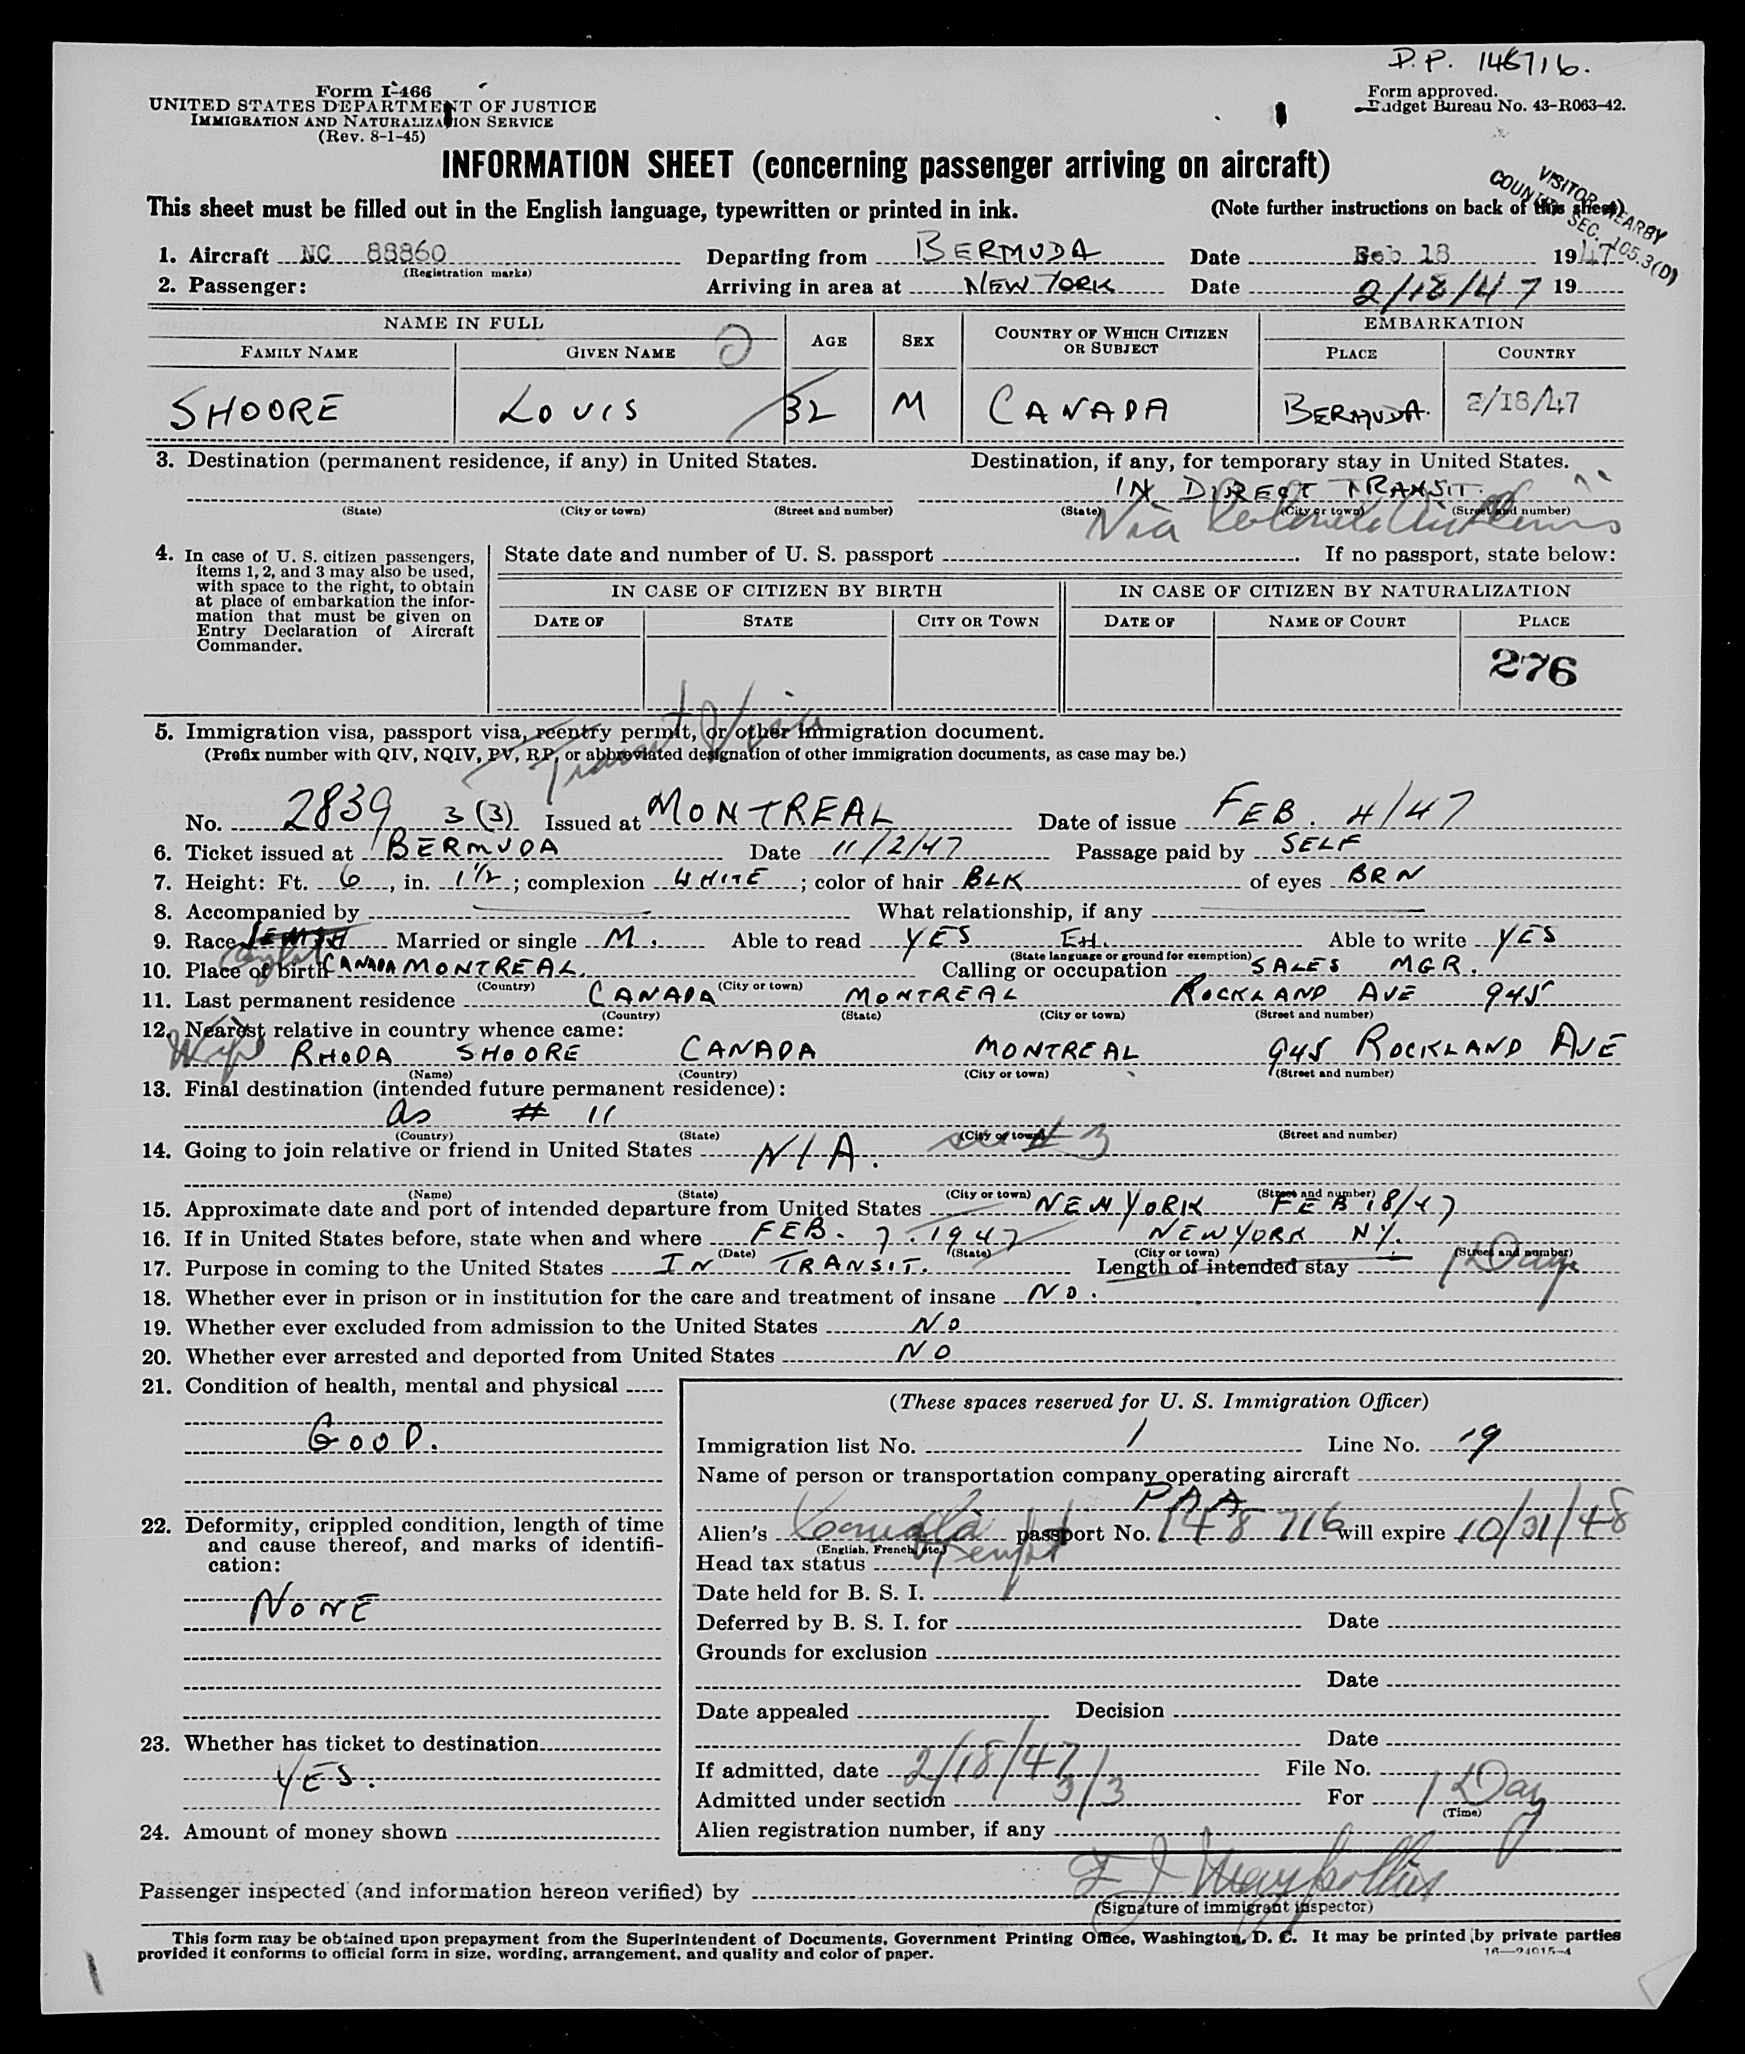 P.P. 148716.
Form I-466
UNITED STATES DEPARTMENT OF JUSTICE
IMMIGRATION AND NATURALIZATION SERVICE
(Rev. 8-1-45)
Form approved.
Budget Bureau No. 43-R063-42.
INFORMATION SHEET (concerning passenger arriving on aircraft)
VISITOR NEARBY
COUNTRY SEC. 105.3(D)
This sheet must be filled out in the English language, typewritten or printed in ink. (Note further instructions on back of this sheet)
1. Aircraft NC 88860 Departing from BERMUDA Date Feb 18 1947
(Registration marks)
2. Passenger: Arriving in area at NEW YORK Date 2/18/47 19
NAME IN FULL AGE SEX COUNTRY OF WHICH CITIZEN OR SUBJECT EMBARKATION
FAMILY NAME GIVEN NAME PLACE COUNTRY
SHOORE LOUIS 32 M CANADA BERMUDA 2/18/47
3. Destination (permanent residence, if any) in United States. Destination, if any, for temporary stay in United States.
IN DIRECT TRANSIT.
(State) (City or town) (Street and number) (State) (City or town) (Street and number)
Via Colonial Airlines
4. In case of U. S. citizen passengers, items 1, 2, and 3 may also be used, with space to the right, to obtain at place of embarkation the information that must be given on Entry Declaration of Aircraft Commander.
State date and number of U. S. passport If no passport, state below:
IN CASE OF CITIZEN BY BIRTH IN CASE OF CITIZEN BY NATURALIZATION
DATE OF STATE CITY OR TOWN DATE OF NAME OF COURT PLACE
276
5. Immigration visa, passport visa, reentry permit, or other immigration document.
(Prefix number with QIV, NQIV, PV, RP, or abbreviated designation of other immigration documents, as case may be.)
Transit Visa
No. 2839 3(3) Issued at MONTREAL Date of issue FEB. 4/47
6. Ticket issued at BERMUDA Date 11/2/47 Passage paid by SELF
7. Height: Ft. 6, in. 1 1/2; complexion WHITE; color of hair BLK of eyes BRN
8. Accompanied by What relationship, if any
9. Race Married or single M. Able to read YES EH. Able to write YES
(State language or ground for exemption)
10. Place of birth CANADA MONTREAL. Calling or occupation SALES MGR.
(Country) (City or town)
11. Last permanent residence CANADA MONTREAL ROCKLAND AVE 945
(Country) (State) (City or town) (Street and number)
12. Nearest relative in country whence came:
Wife RHODA SHOORE CANADA MONTREAL 945 ROCKLAND AVE
(Name) (Country) (City or town) (Street and number)
13. Final destination (intended future permanent residence):
as # 11
(Country) (State) (City or town) (Street and number)
14. Going to join relative or friend in United States N/A. see # 3
(Name) (State) (City or town) (Street and number)
15. Approximate date and port of intended departure from United States NEW YORK FEB 18/47
16. If in United States before, state when and where FEB. 7. 1947 NEW YORK N.Y.
(Date) (State) (City or town) (Street and number)
17. Purpose in coming to the United States IN TRANSIT. Length of intended stay 1 Day
18. Whether ever in prison or in institution for the care and treatment of insane NO.
19. Whether ever excluded from admission to the United States NO
20. Whether ever arrested and deported from United States NO
21. Condition of health, mental and physical
GOOD.
22. Deformity, crippled condition, length of time and cause thereof, and marks of identification:
NONE
23. Whether has ticket to destination
YES.
24. Amount of money shown
(These spaces reserved for U. S. Immigration Officer)
Immigration list No. 1 Line No. 19
Name of person or transportation company operating aircraft
PAA
Alien's Canada passport No. 148716 will expire 10/31/48
(English, French, etc.)
Head tax status Exempt
Date held for B. S. I.
Deferred by B. S. I. for Date
Grounds for exclusion
Date
Date appealed Decision
Date
If admitted, date 2/18/47 File No.
Admitted under section 3/3 For 1 Day
(Time)
Alien registration number, if any
Passenger inspected (and information hereon verified) by
(Signature of immigrant inspector)
This form may be obtained upon prepayment from the Superintendent of Documents, Government Printing Office, Washington, D. C. It may be printed by private parties
provided it conforms to official form in size, wording, arrangement, and quality and color of paper.
16—24015-4